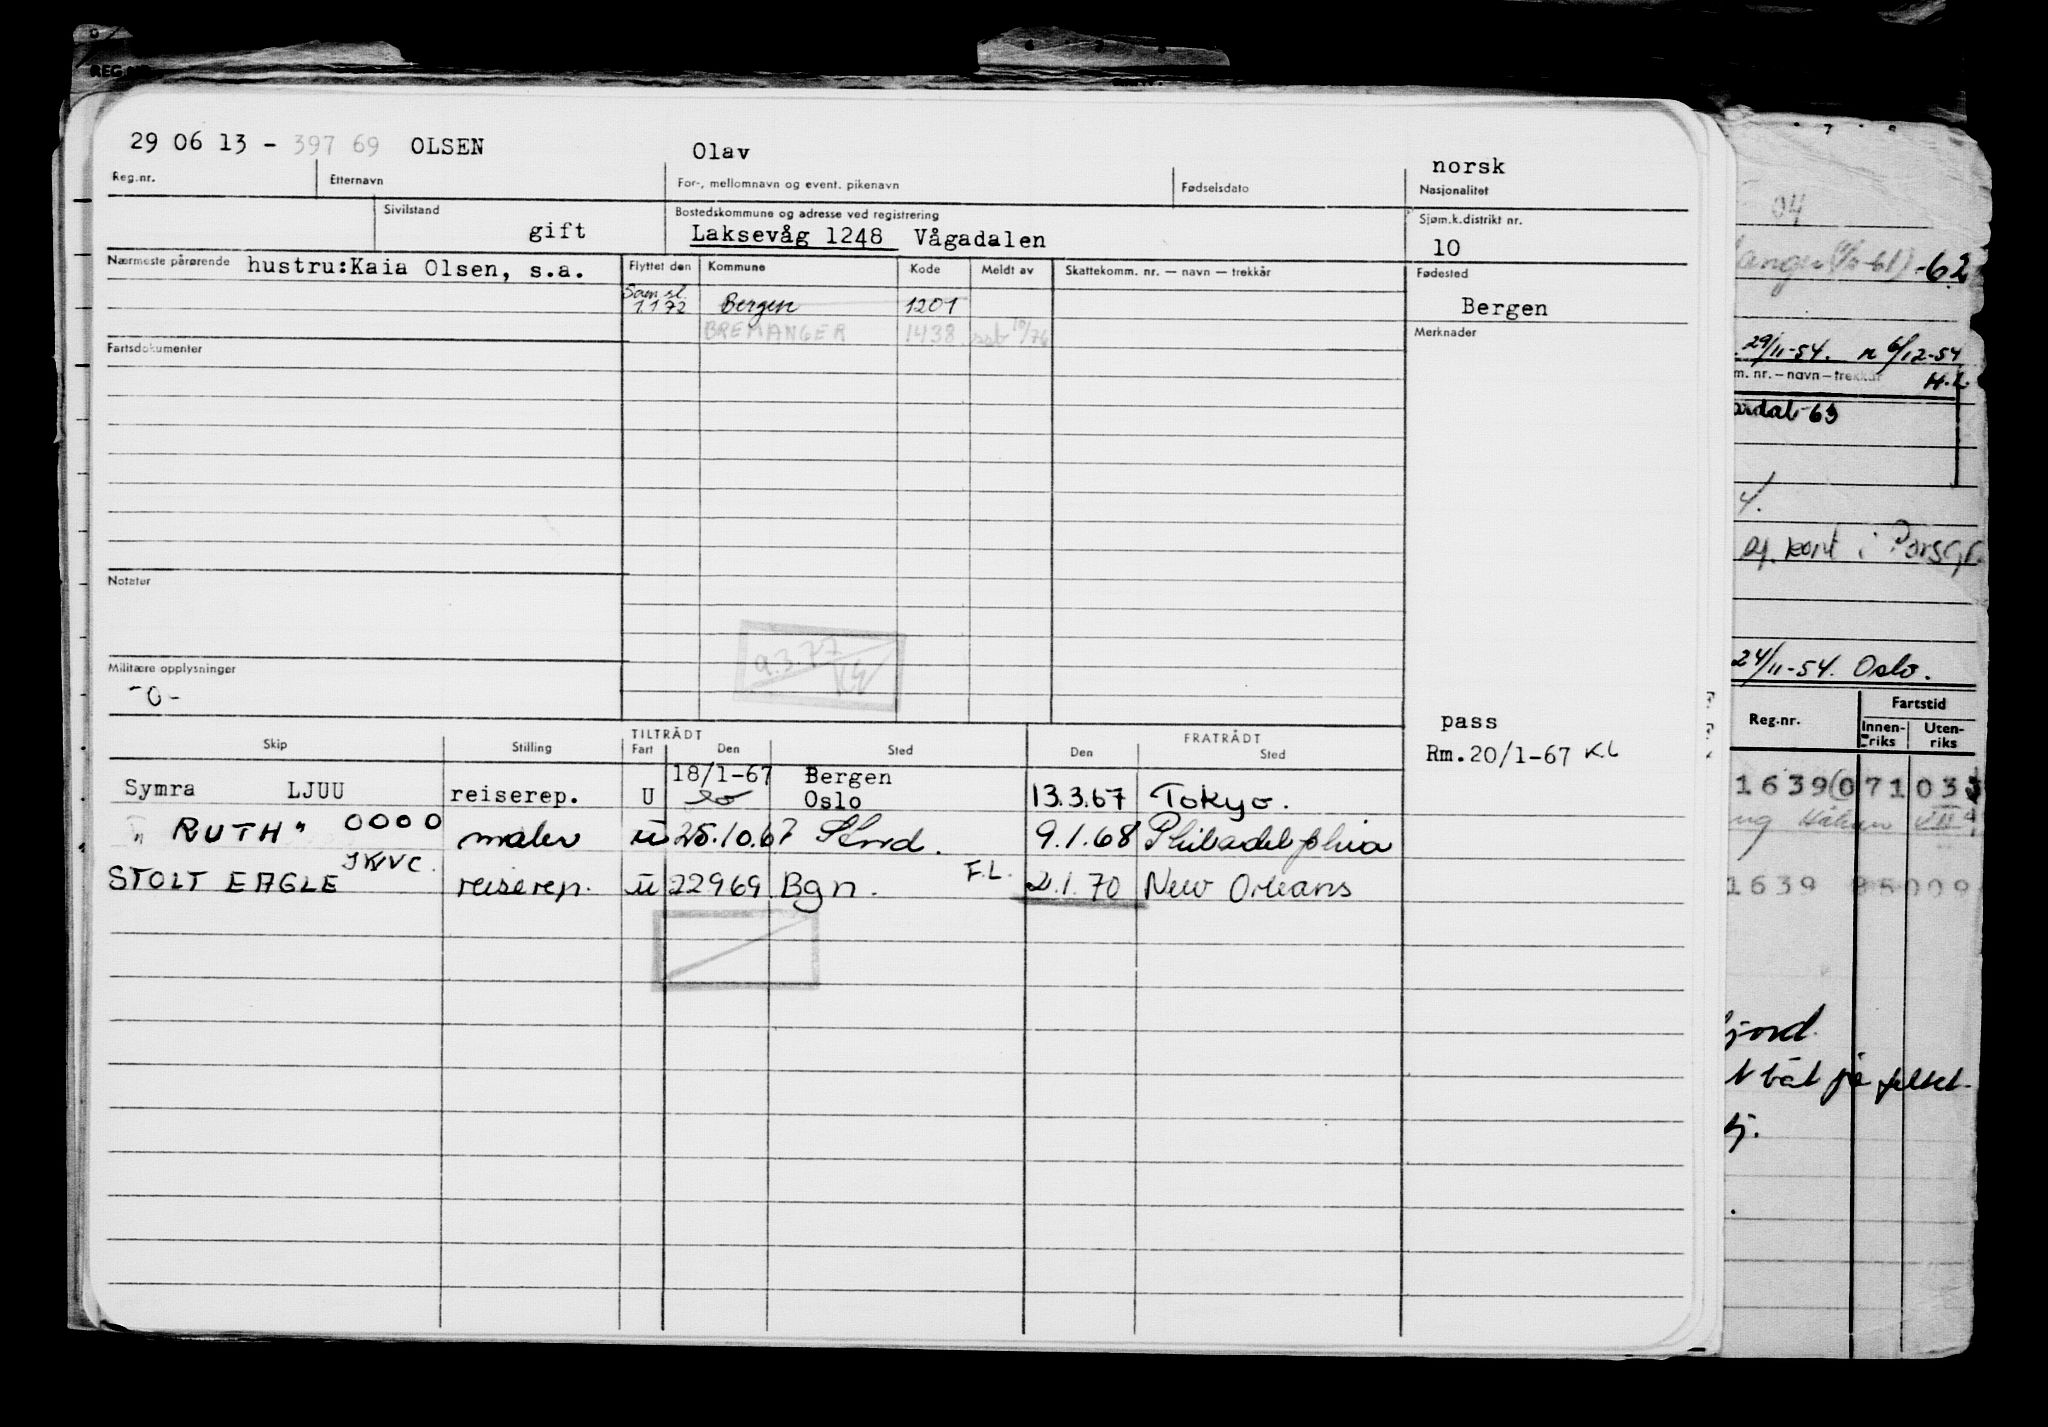 REG.NR.
29 06 13 - 397 69 OLSEN Olav norsk
Reg.nr. Etternavn For-, mellomnavn og event. pikenavn Fødselsdato Nasjonalitet
Sivilstand Bostedskommune og adresse ved registrering Sjøm.k.distrikt nr.
gift Laksevåg 1248 Vågadalen 10
Nærmeste pårørende hustru:Kaia Olsen, s.a. Flyttet den Kommune Kode Meldt av Skattekomm. nr. — navn — trekkår Fødested
Sam.sl.
1 1 72 Bergen 1201 Bergen
BREMANGER 1438 ssb 10/76 Merknader
Fartsdokumenter
Notater
9.3.77
Militære opplysninger
-0-
pass
Skip Stilling TILTRÅDT Fart Den Sted FRATRÅDT Den Sted
Rm.20/1-67 KL
18/1-67 Bergen
Symra LJUU reiserep. U Oslo 13.3.67 Tokyo.
"RUTH" OOOO maler U 25.10.67 Stord. 9.1.68 Philadelphia
JKVC.
STOLT EAGLE reiserep. U 22969 Bgn. F.L. 2.1.70 New Orleans
04
-62
29/11-54. n 6/12-54
m. nr. — navn — trekkår H.L.
ardal-63
4.
kont i Porsgr
24/11-54. Oslo.
Reg.nr. Fartstid
Innenriks Utenriks
1639 071 03
1639 85009
fjord.
t båt på feltet.